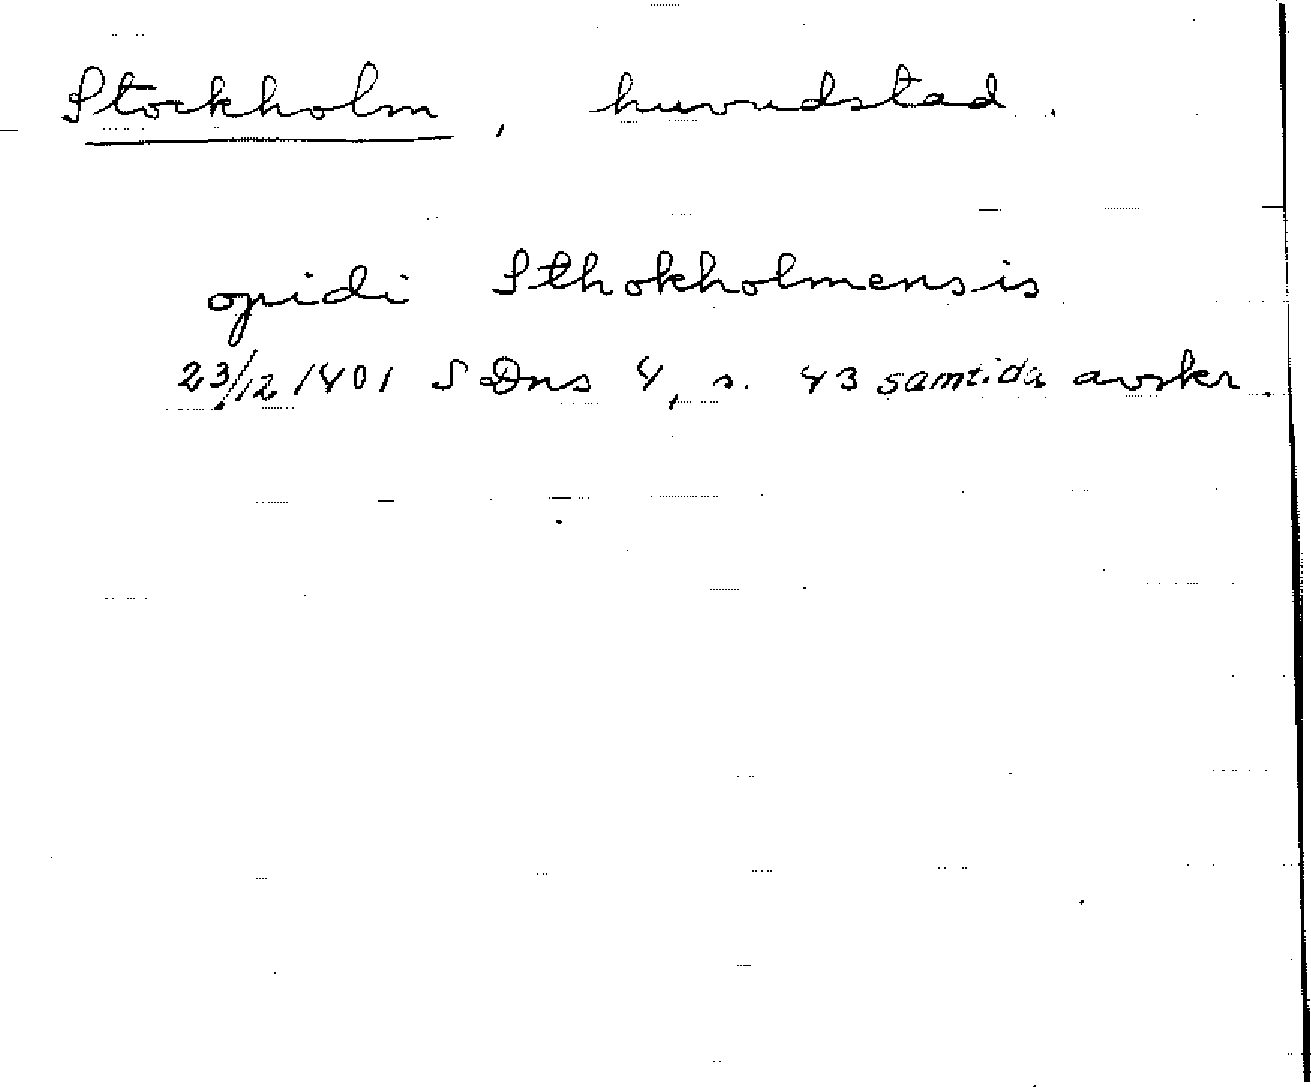 Stockholm, huvudstad.
opidi Sthokholmensis
23/12 1401 SDns 4, s. 43 samtida avskr.